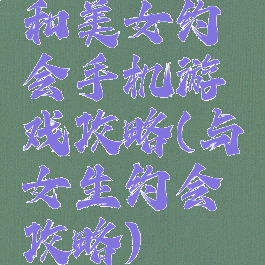 和美女约
会手机游
戏攻略(与
女生约会
攻略)